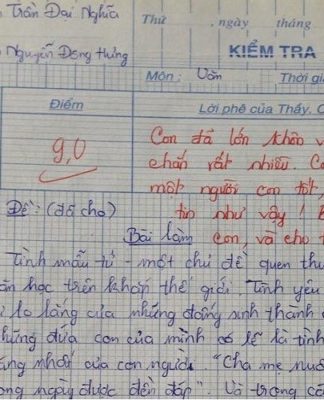 Trần Đại Nghĩa
Thứ , ngày tháng
Nguyễn Đông Hưng
KIỂM TRA
Môn: Văn Thời gi
Điểm
Lời phê của Thầy, C
9,0
Con đã lớn khôn v
chắn rất nhiều. C
một người con tốt,
tin như vậy!
con, và cho t
Đề: (đã cho)
Bài làm
Tình mẫu tử - một chủ đề quen thu
ăn học trên khắp thế giới. Tình yêu
lo lắng của những đấng sinh thành
hững đứa con của mình có lẽ là tình
nhất của con người. "Cha mẹ nuô
ong ngày được đền đáp". Và trong cô